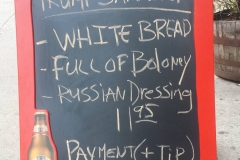 TRUMP SANDWICH
- WHITE BREAD
- FULL OF BOLONEY
- RUSSIAN Dressing
11 95
PAYMENT (+ TIP)